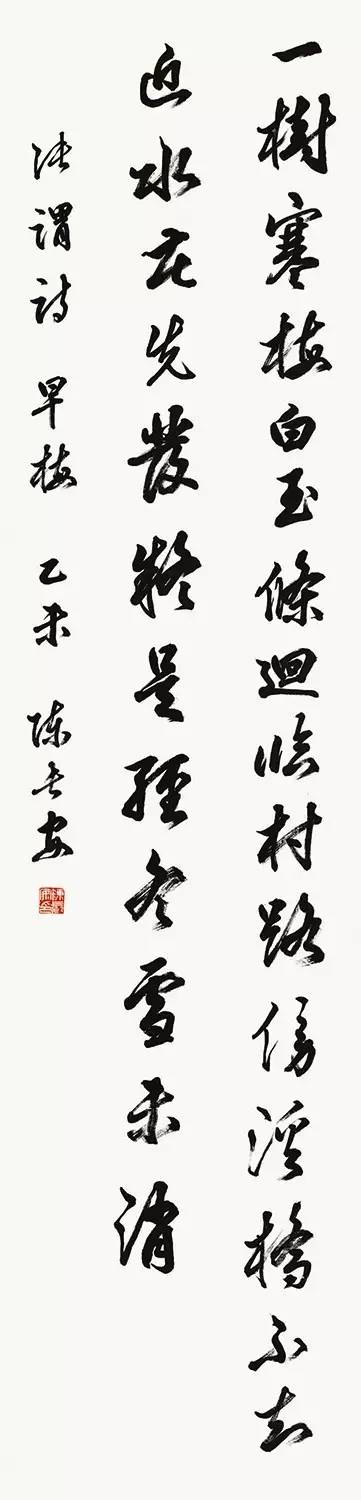 一樹寒梅白玉條迴臨村路傍溪橋不知
近水花先發疑是經冬雪未消
張謂詩 早梅 乙未 陳長安